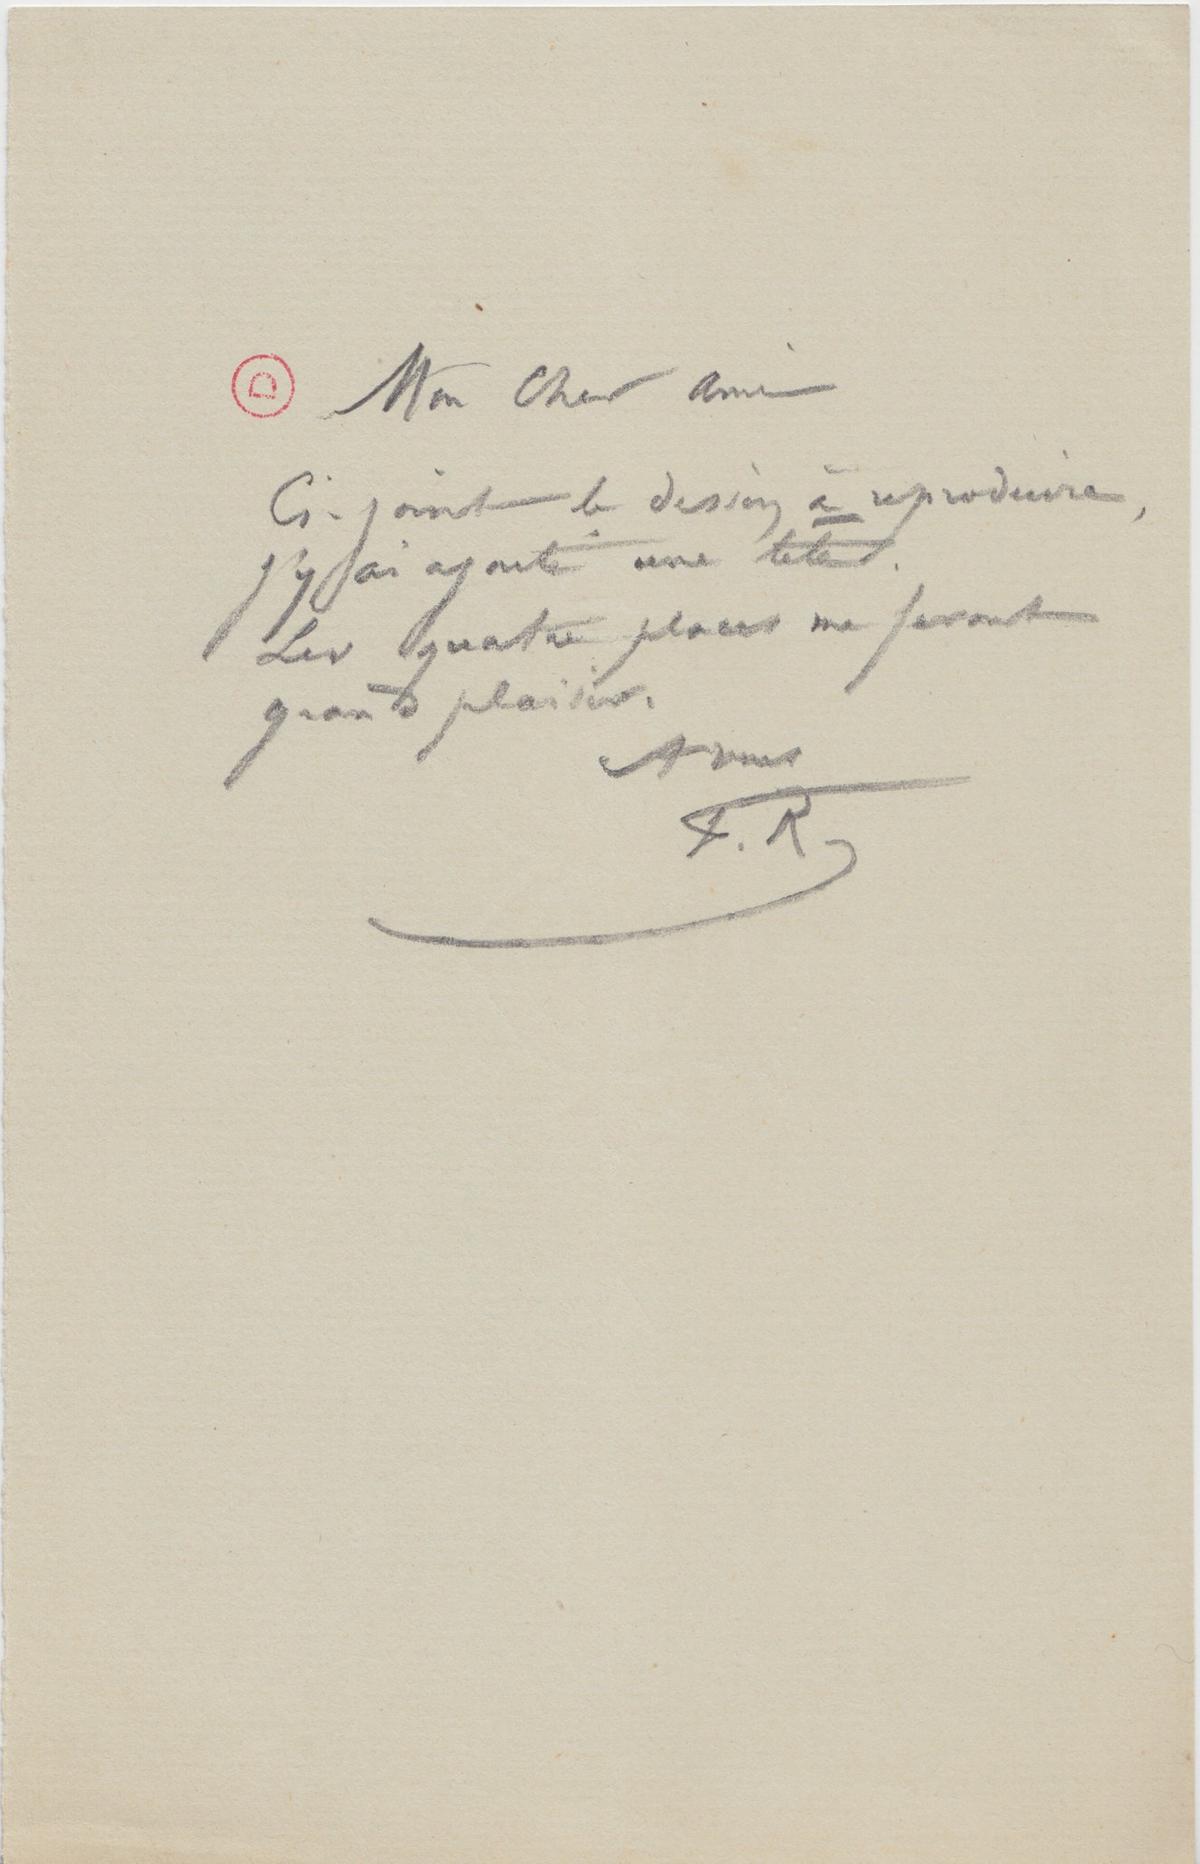 D
Mon Cher ami
Ci-joint le dessin à reproduire,
j'y ai ajouté une tête.
Les quatre places me feront
grand plaisir.
A vous
F. R